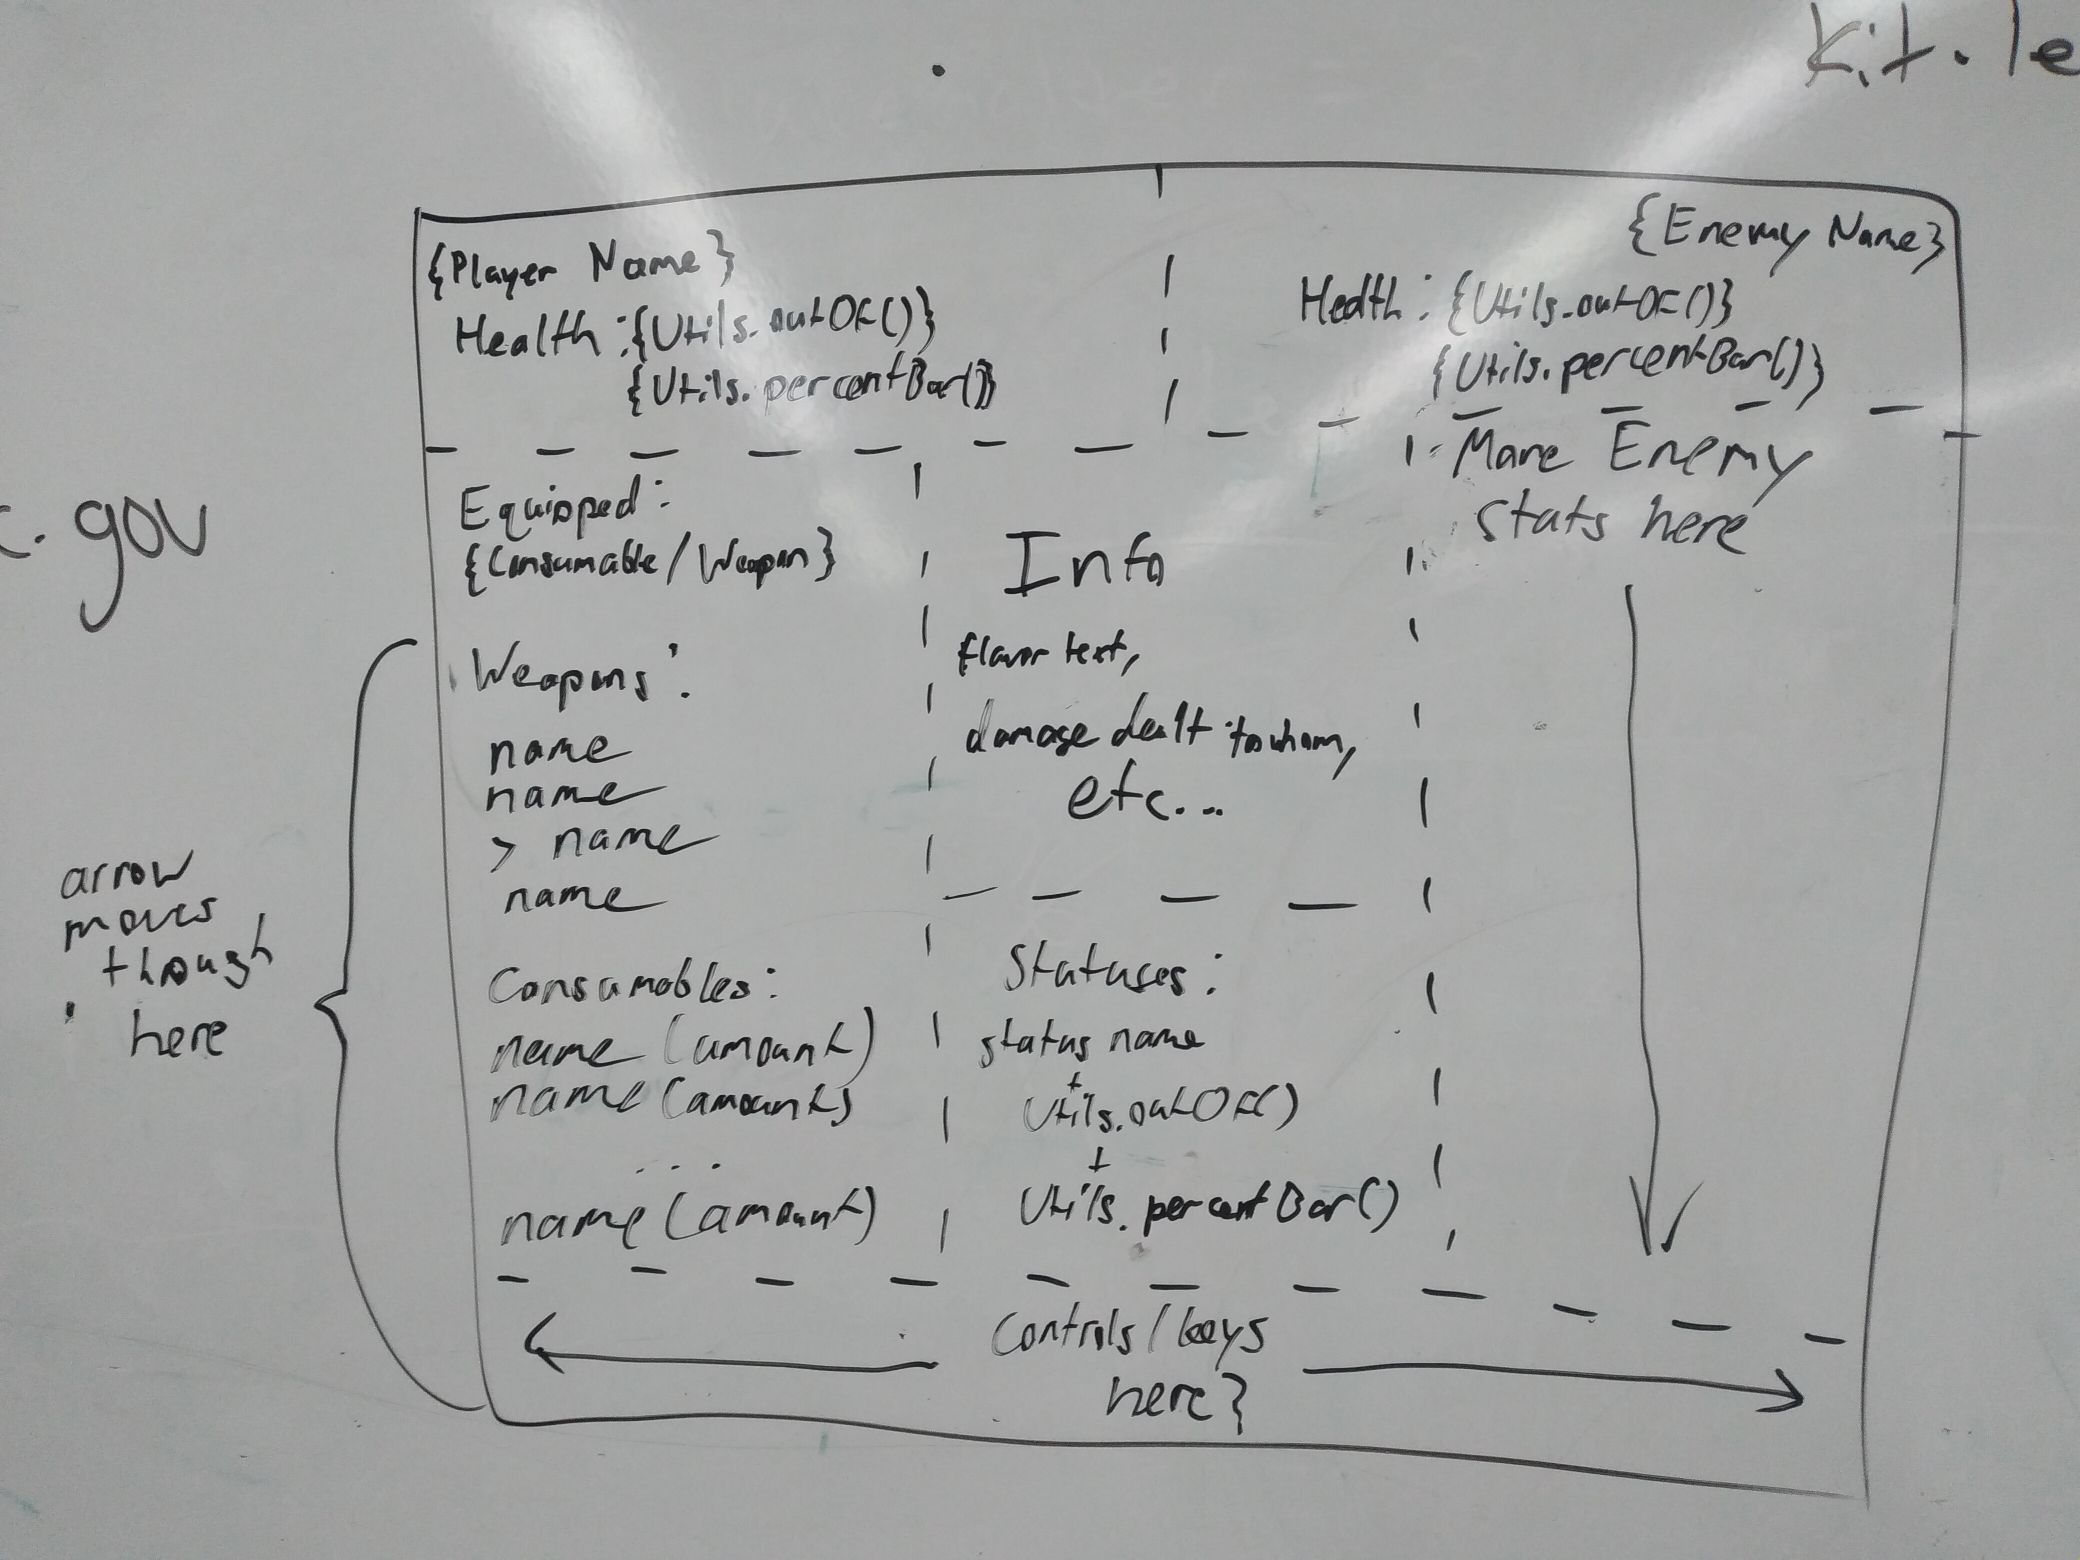 kit.le
c.gov
{Player Name}
Health:{Utils.outOf()}
{Utils.percentBar()}
{Enemy Name}
Health:{Utils.outOf()}
{Utils.percentBar()}
Equipped:
{Consumable/Weapon}
Weapons:
name
name
> name
name
Consumables:
name (amount)
name (amount)
...
name (amount)
Info
flavor text,
damage dealt to whom,
etc...
Statuses:
status name
+
Utils.outOf()
+
Utils.percentBar()
More Enemy
stats here
Controls/keys
here}
arrow
moves
though
here